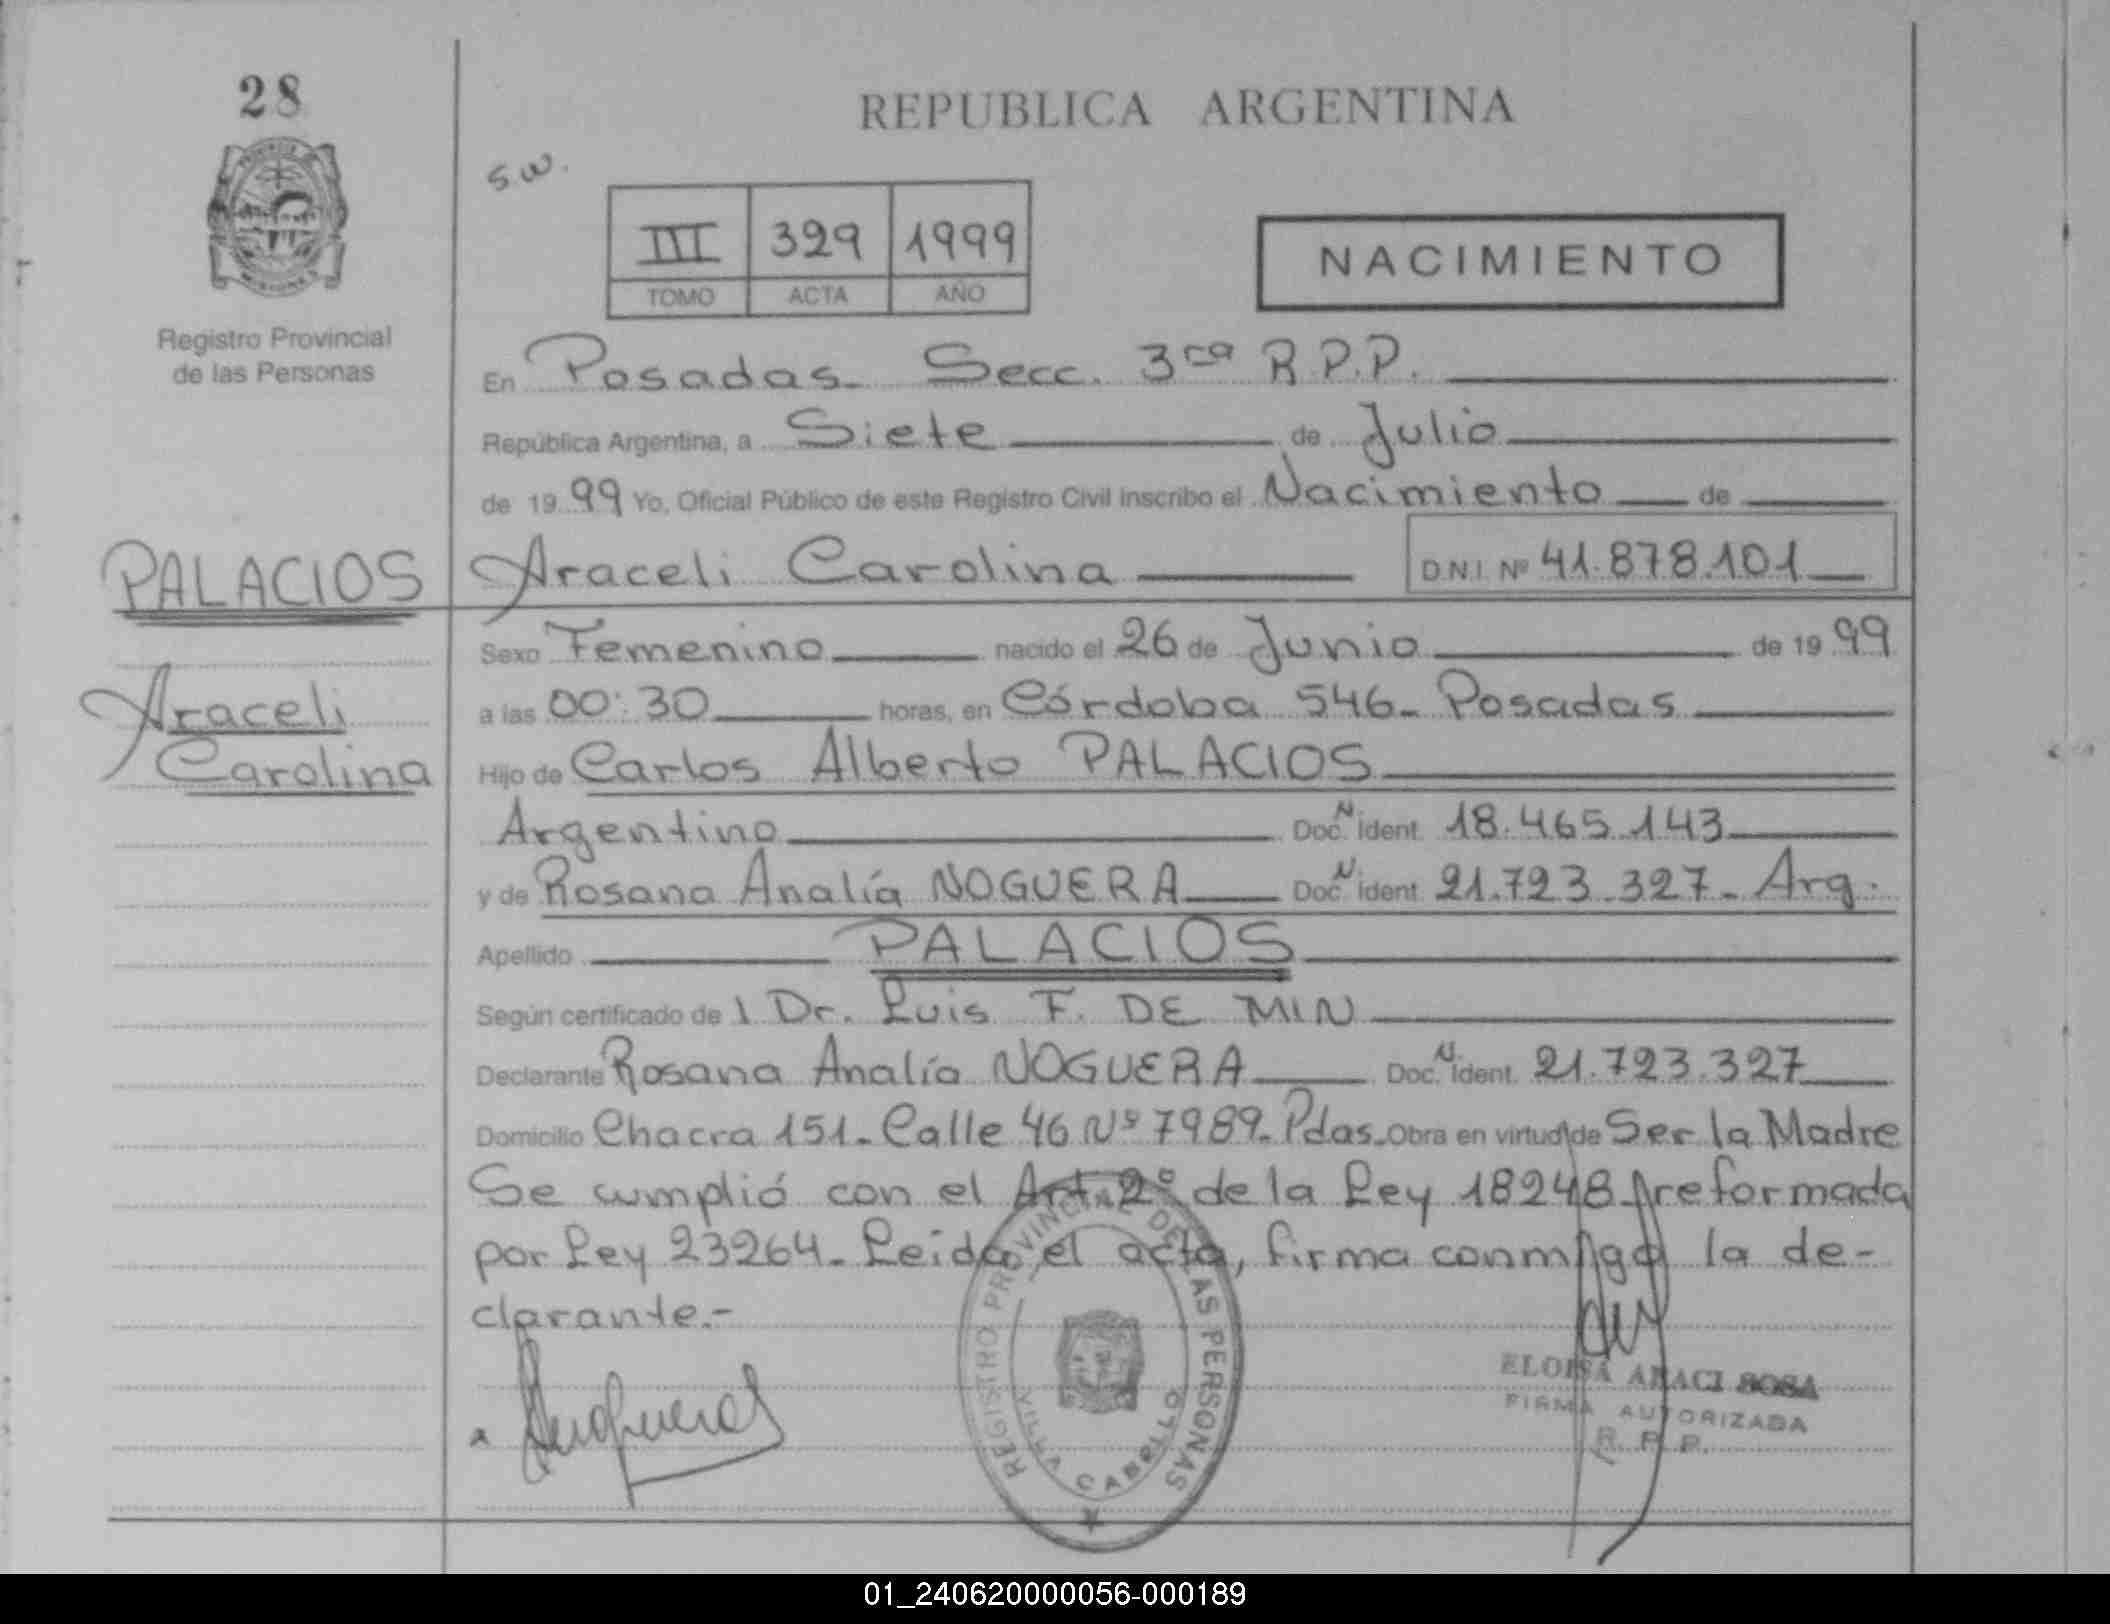 28
REPUBLICA ARGENTINA
s.w.
III 329 1999
TOMO ACTA AÑO
NACIMIENTO
Registro Provincial
de las Personas
En Posadas. Secc. 3ra R.P.P.
República Argentina, a Siete de Julio
de 1999 Yo, Oficial Público de este Registro Civil inscribo el Nacimiento de
PALACIOS Araceli Carolina D.N.I. Nº 41.878.101
Sexo Femenino nacido el 26 de Junio de 1999
Araceli a las 00:30 horas, en Córdoba 546- Posadas
Carolina Hijo de Carlos Alberto PALACIOS
Argentino Doc. N Ident. 18.465.143
y de Rosana Analía NOGUERA Doc. N Ident. 21.723.327- Arg.
Apellido PALACIOS
Según certificado de l Dr. Luis F. DE MIN
Declarante Rosana Analía NOGUERA Doc. N Ident. 21.723.327
Domicilio Chacra 151- Calle 46 Nº 7989- Pdas. Obra en virtud de Ser la Madre
Se cumplió con el Art. 2º de la Ley 18248 reformada
por Ley 23264- Leida el acta, firma conmigo la de-
clarante.-
REGISTRO PROVINCIAL DE LAS PERSONAS
VILLA CABELLO
ELOISA ARACI SOSA
FIRMA AUTORIZADA
R. P. P.
01_240620000056-000189